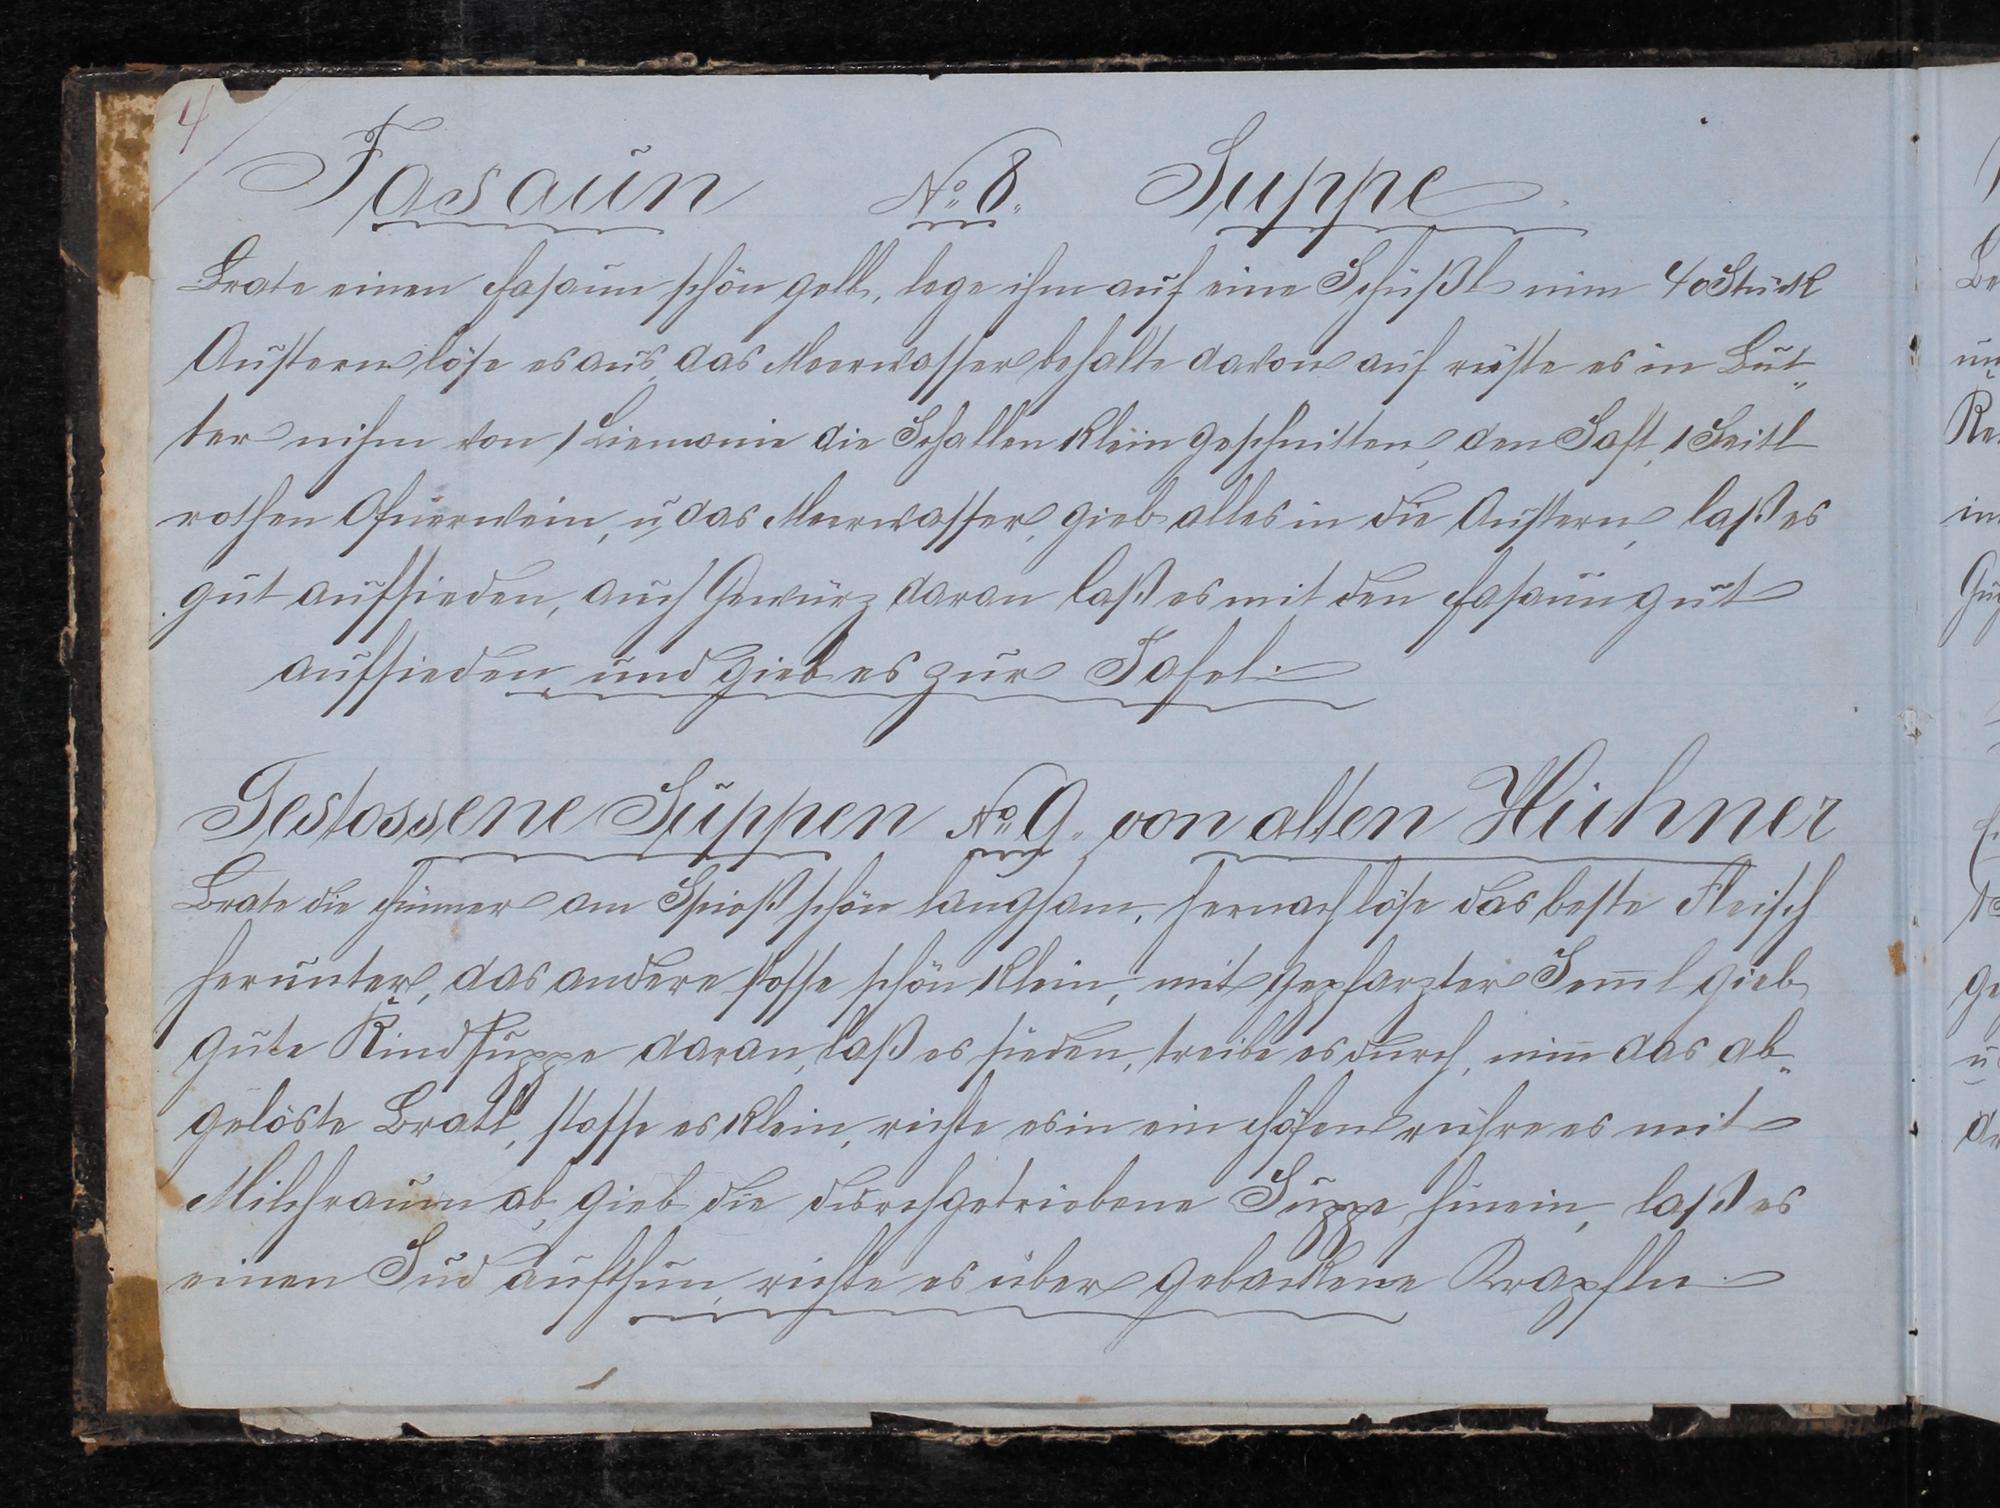 4
Fasaun No 8. Suppe
Brate einen Fasaun schön gelb, lege ihm auf eine Schüßl nim 40 Stück
Austern löse es aus, das Meerwasser behalte davon auf rüste es in But„
ter nihm von 1 Liemonie die Schallen klein geschnitten, den Saft, 1 Seitl
rothen Ofnerwein, u das Meerwasser, gieb alles in die Austern, laß es
gut aufsieden, auch Gewürz daran laß es mit den Fasaun gut
aufsieden und gieb es zur Tafel.
Gestossene Suppen No 9. von alten Hühner
Brate die Hünner am Spieß schön langsam, hernach löse das beste Fleisch
herunter, das andere stosse schön klein, mit gepfarzter Sem̅l gieb
gute Rindsuppe daran, laß es sieden, treibe es durch, nim̅ das ab„
gelöste Bratl, stosse es klein, richte es in ein Höfen rühre es mit
Milchraum ab, gieb die durchgetriebene Suppe hinein, laß es
einen Sud aufthun, richte es über gebackene Krapfln.